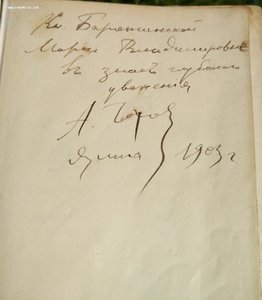 Кн. Барятинской
Марии Владимировне
въ знакъ глубокаго
уваженія
А.
Ялта 1903 г